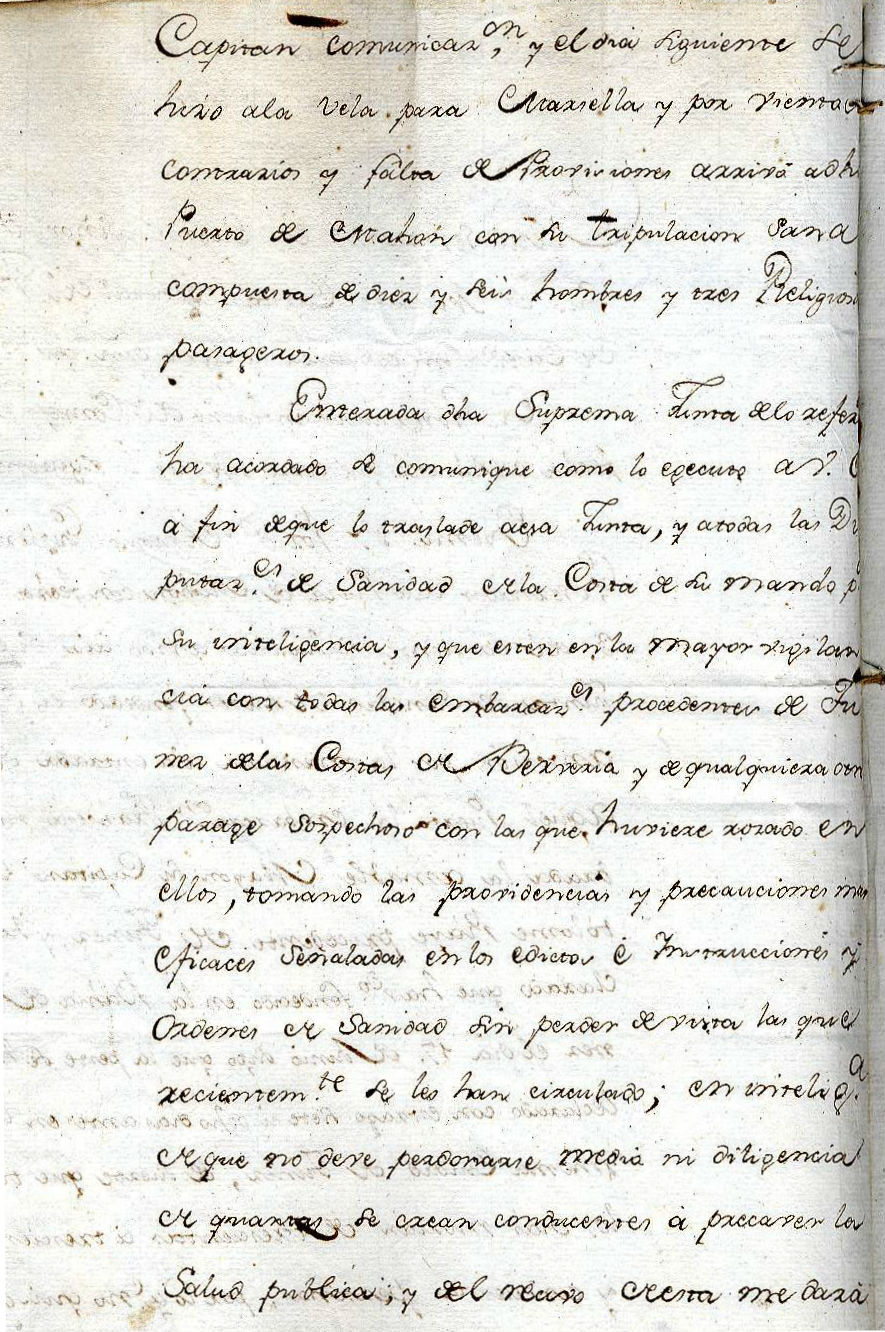 Capitan comunicaz.on, y el dia siguiente se
hizo ala Vela para Marsella y por vientos
contrarios y falta de Provisiones arrivó a dho
Puerto de Mahon con su tripulacion Sana
compuesta de diez y seis hombres y tres Religios
pasageros.
Enterada dha Suprema Junta de lo refer
ha acordado se comunique como lo egecuto a V.
a fin deque lo traslade aesa Junta, y atodas las Di
putaz.es de Sanidad de la Costa de su mando p
su inteligencia, y que esten en la mayor vigilan
cia con todas las embarcaz.es procedentes de Tu
nez de las Costas de Berveria y de qualquiera otro
parage sospechoso con las que huviere rozado en
ellos, tomando las providencias y precauciones mas
eficaces Señaladas en los edictos é Instrucciones y
Ordenes de Sanidad sin perder de vista las que
recientem.te se les han circulado; en intelig.a
de que no deve perdonarse media ni diligencia
de quantas se crean conducentes á precaver la
Salud publica; y del recivo de esta me dará